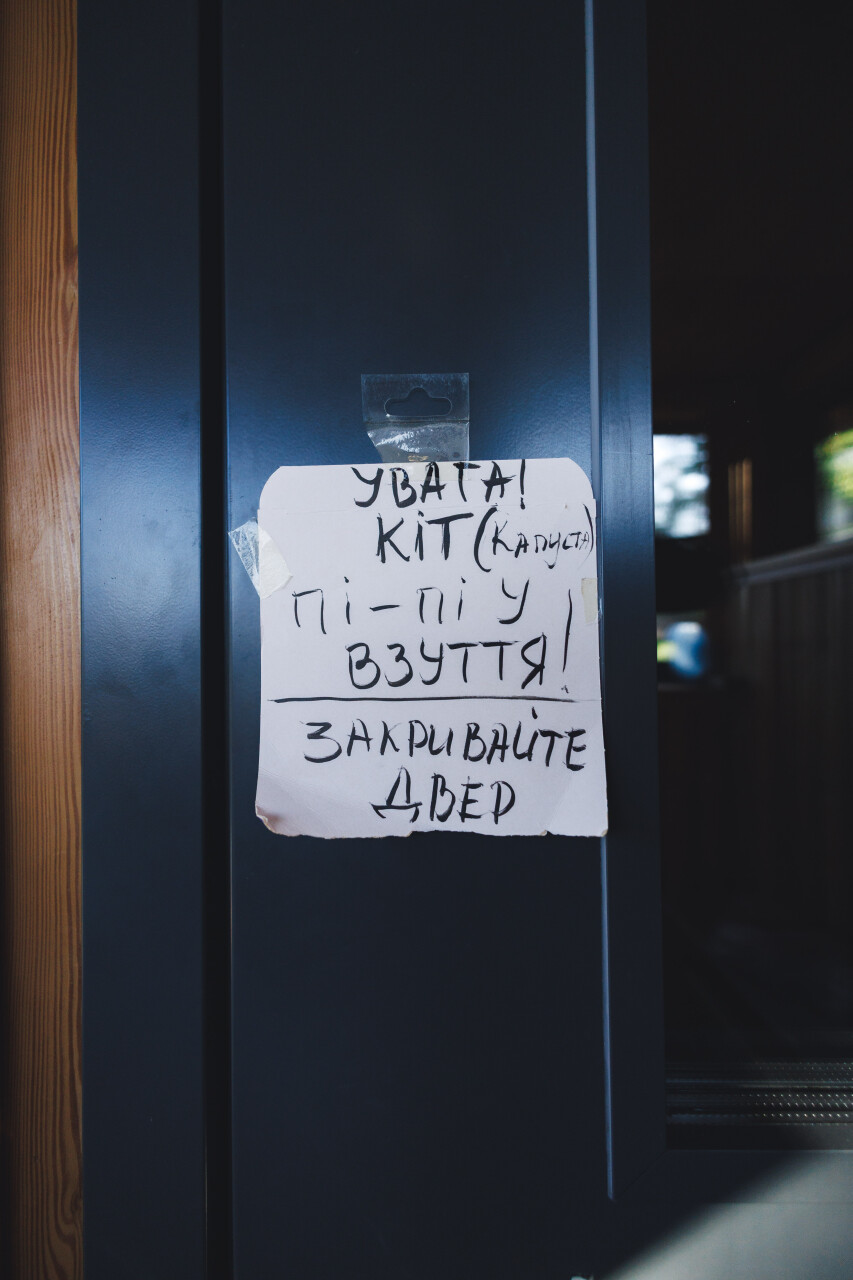 УВАГА!
КІТ (КАПУСТА)
ПІ-ПІ У
ВЗУТТЯ!
ЗАКРИВАЙТЕ
ДВЕР